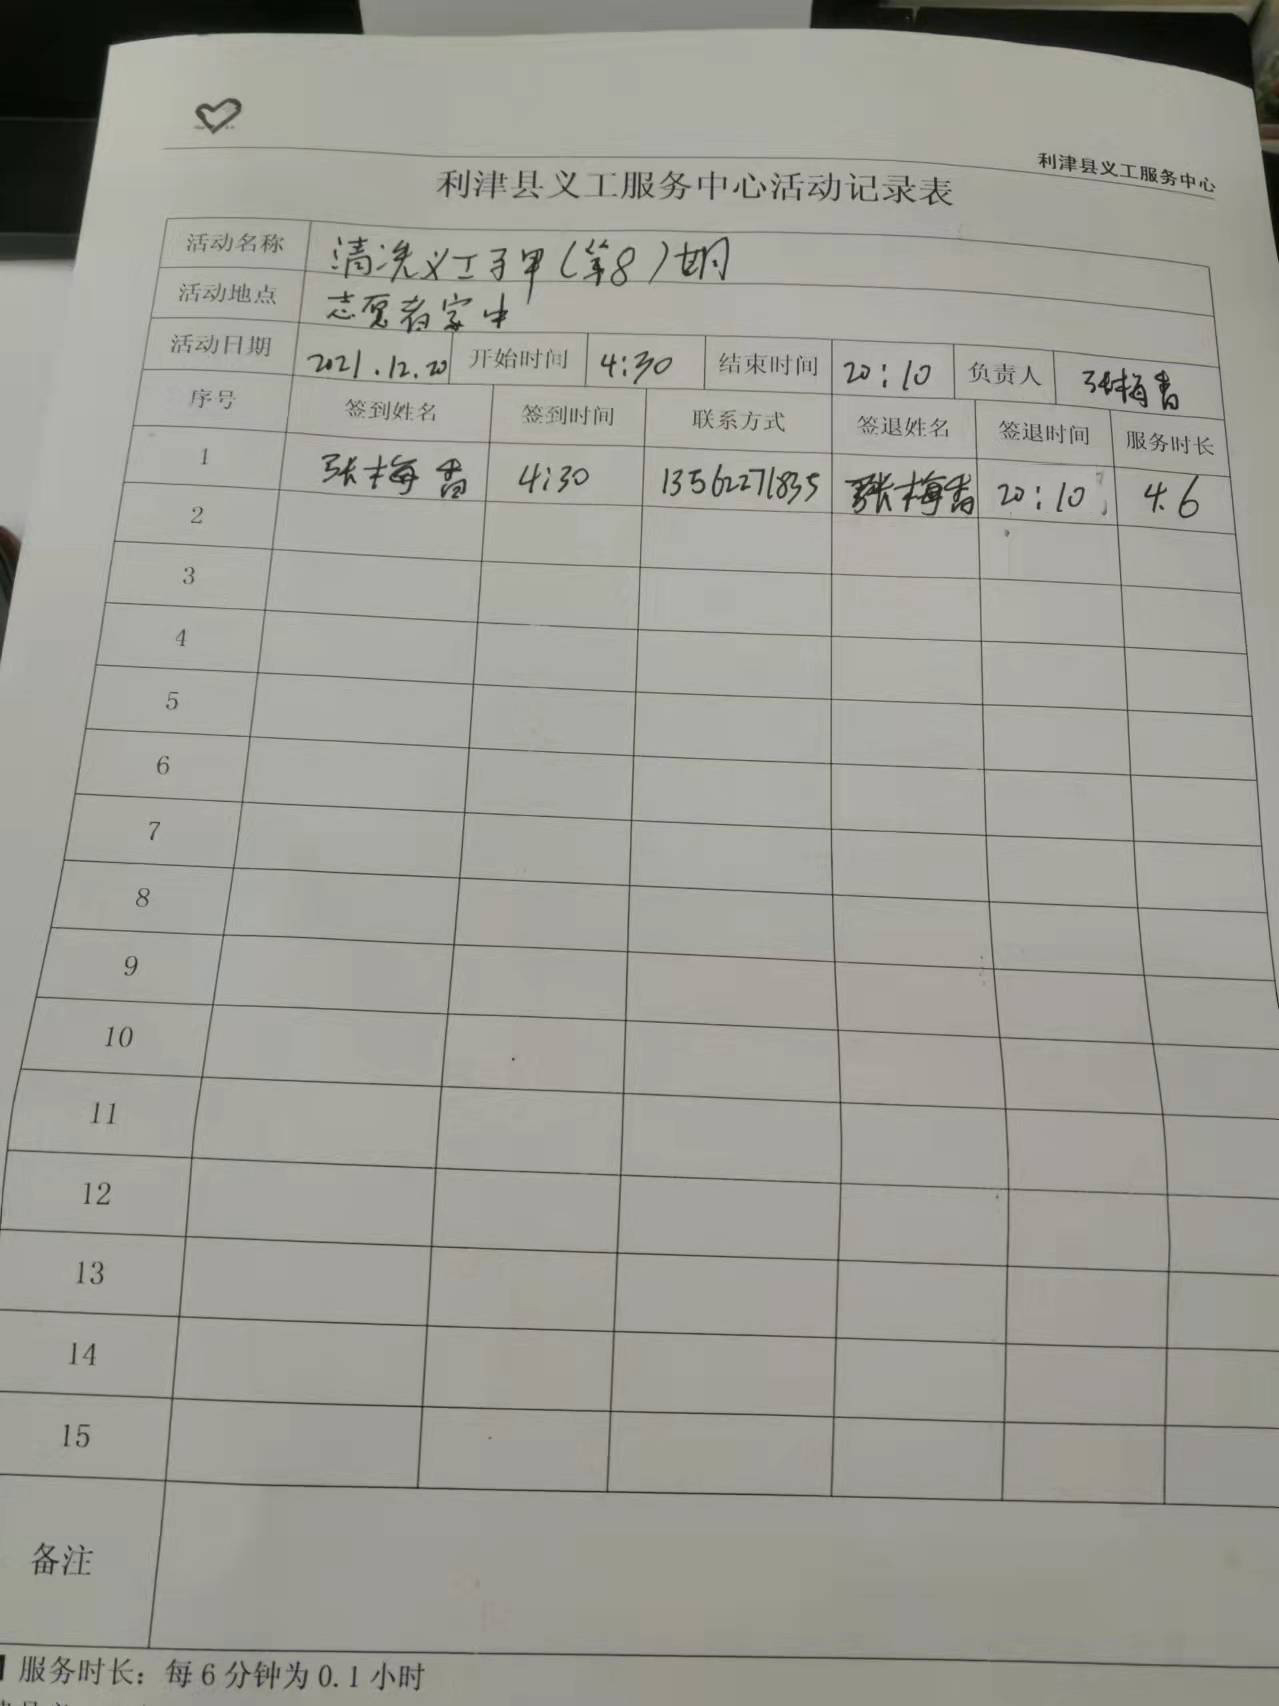 利津县义工服务中心
利津县义工服务中心活动记录表
活动名称 清洗义工马甲(第8)期
活动地点 志愿者家中
活动日期 2021.12.20 开始时间 4:30 结束时间 20:10 负责人 张梅香
序号 签到姓名 签到时间 联系方式 签退姓名 签退时间 服务时长
1 张梅香 4:30 13562271835 张梅香 20:10 4.6
2
3
4
5
6
7
8
9
10
11
12
13
14
15
备注
服务时长：每6分钟为0.1小时